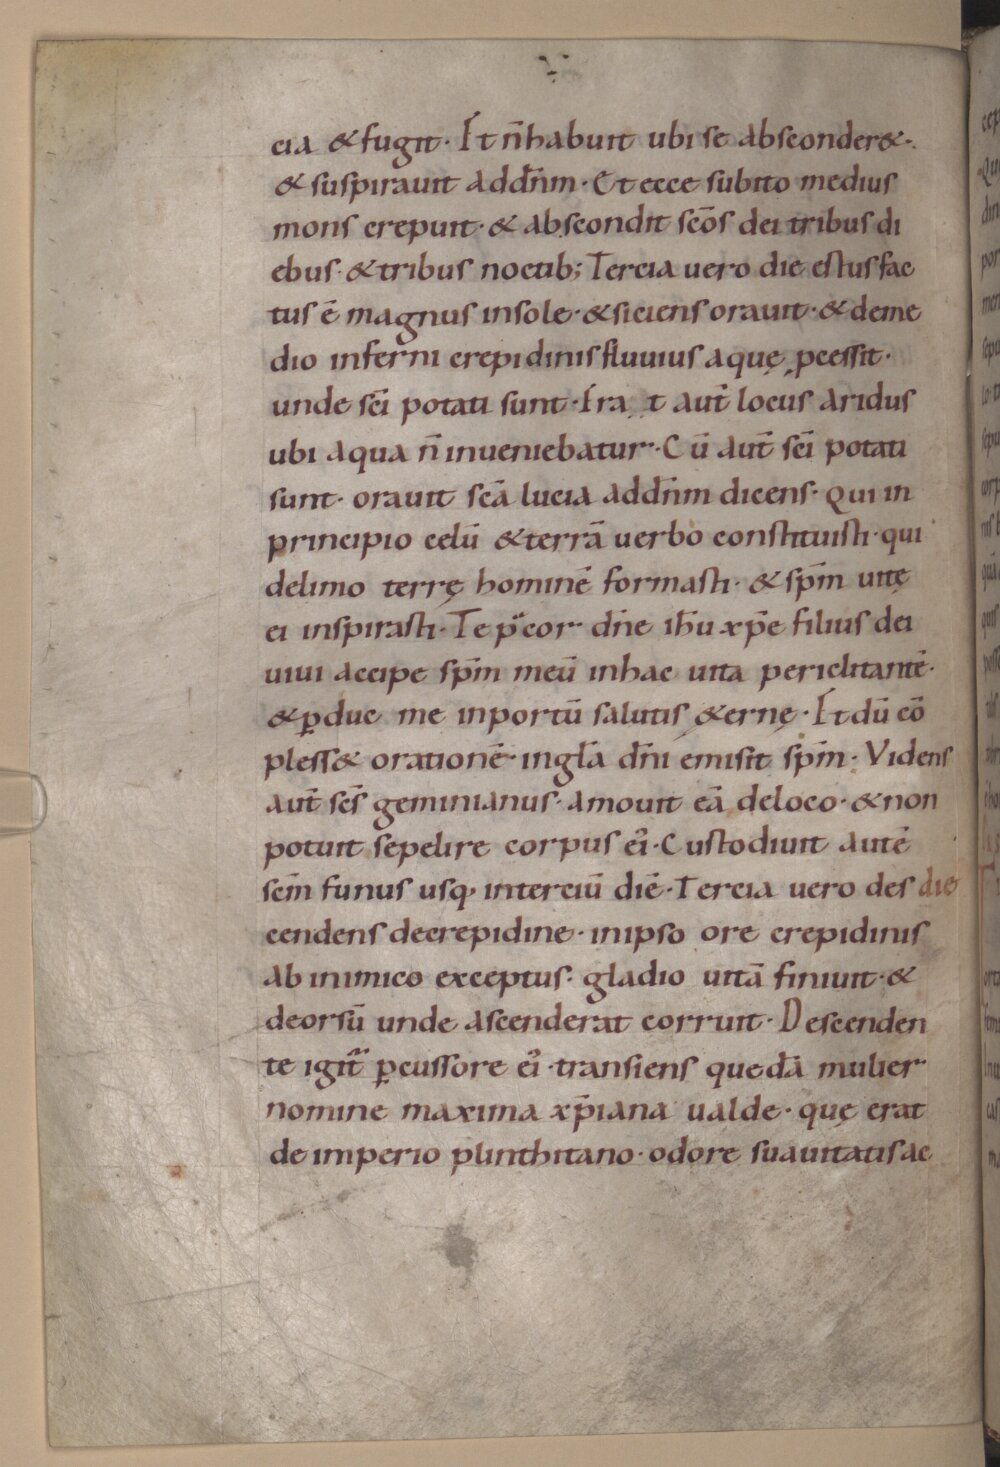 cia & fugit · Et n̄ habuit ubi se absconder& ·
& suspirauit ad dn̄m · Et ecce subito medius
mons crepuit · & abscondit scōs dei tribus di
ebus · & tribus noctib; Tercia uero die estus fac
tus ē magnus in sole · & siciens orauit · & de me
dio inferni crepidinis fluuius aquę pcessit ·
unde sci̅ potati sunt · Erat aut̄ locus aridus
ubi aqua n̄ inueniebatur · Cū aut̄ sci̅ potati
sunt · orauit scā lucia ad dn̄m dicens · Qui in
principio celū & terrā uerbo constituisti · qui
de limo terrę hominē formasti · & sp̄m uitę
ei inspirasti · Te p̄cor dn̄e ih̄u xp̄e filius dei
uiui accipe sp̄m meū in hac uita periclitantē ·
& ꝑduc me in portū salutis &ernę · Et dū cō
pless& orationē · in gl̄a dn̄i emisit sp̄m · Videns
aut̄ sc̄s geminianus · amouit eā de loco · & non
potuit sepelire corpus ei᷒ · Custodiuit autē
scm̄ funus usq; in terciū diē · Tercia uero des die
cendens de crepidine · in ipso ore crepidinis
ab inimico exceptus · gladio uitā finiuit · &
deorsū unde ascenderat corruit · Descenden
te igit᷑ ꝑcussore ei᷒ · transiens quedā mulier
nomine maxima xp̄iana ualde · quę erat
de imperio plinthitano · odore suauitatis ac